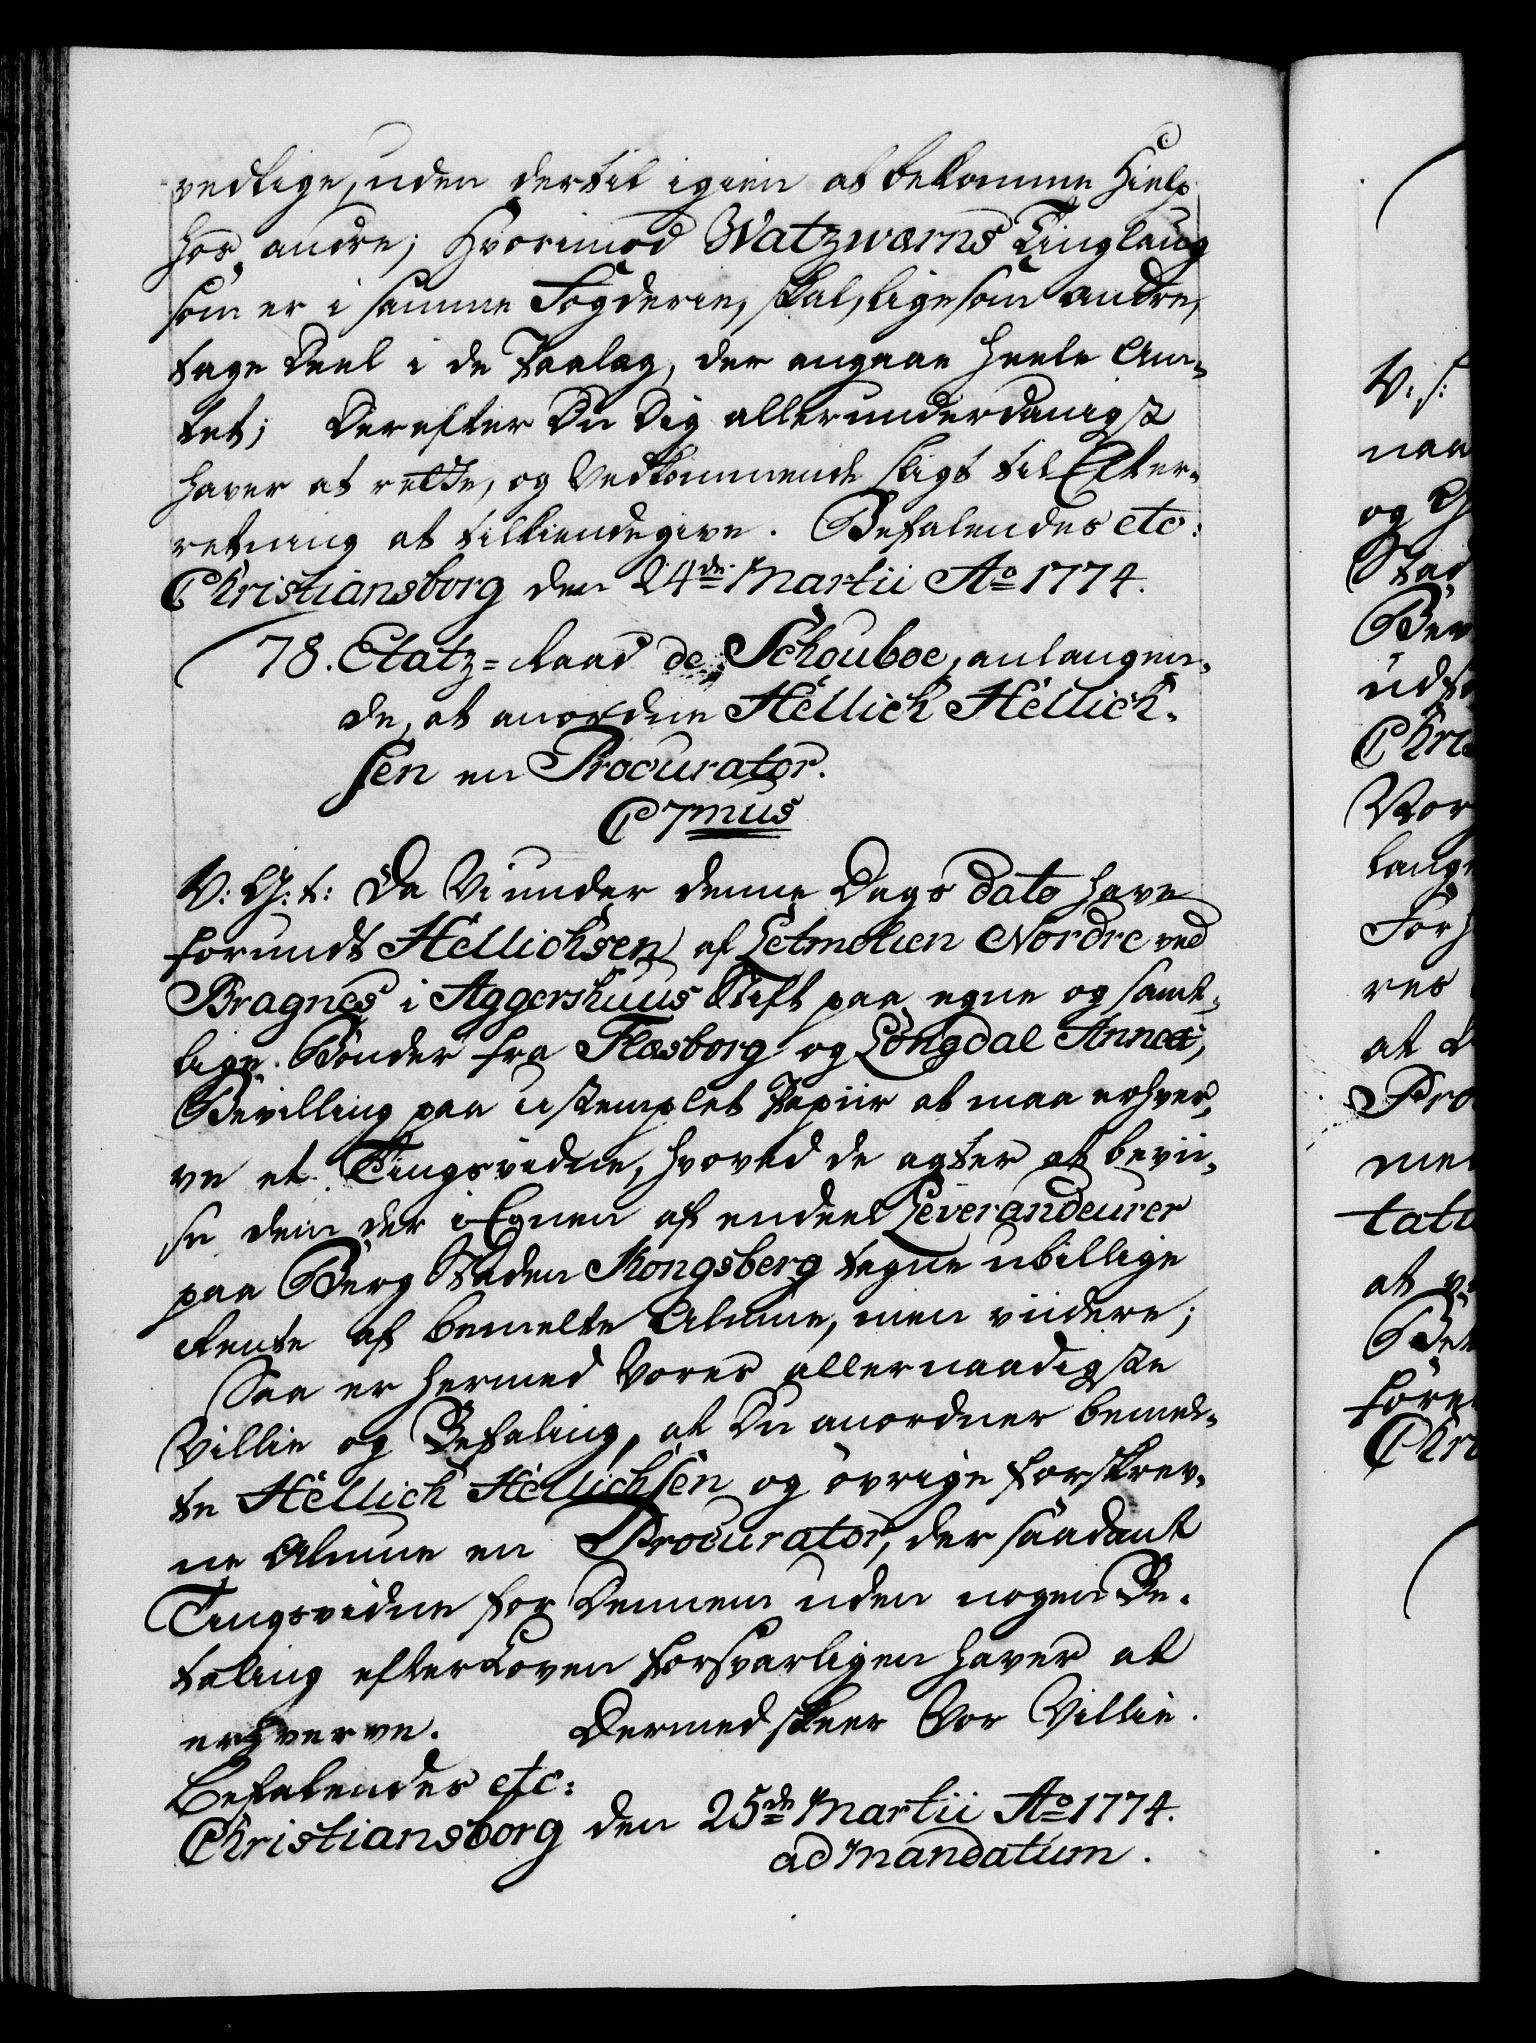 vedlige, uden dertil igien at bekomme Hielp
hos andre; Hvorimod Watzwærns Tinglaug
som er i samme Fogderie, skal, ligesom andre,
tage Deel i de Paalæg, der angaae heele Am-
tet; Derefter Du Dig allerunderdanigst
haver at rette, og Vedkommende sligt til Efter-
retning at tilkiendegive. Befalendes etc:
Christiansborg den 24de Martii Ao 1774.
78. Etatz-Raad de Schouboe, anlangen-
de, at anordne Hellich Hellich-
sen en Procurator.
C7mus
V: G: t: Da Vi under denne Dags dato have
forundt Hellichsen af Letmolien Nordre ved
Bragnes i Aggershuus Stift paa egne og samt-
lige Bönder fra Flæsborg og Löngdal Annex,
Bevilling paa ustemplet Papiir at maa erhver-
ve et Tingsvidne, hvoved de agter at bevii-
se den der i Egnen af endeel Leverandeurer
paa Berg Staden Kongsberg tagne ubillige
Rente af bemelte Almue, men viidere;
Saa er hermed Vores allernaadigste
Villie og Befaling, at Du anordner bemel-
te Hellich Hellichsen og övrige forskrev-
ne Almue en Procurator, der saadant
Tingsvidne for Dennem uden nogen Be-
taling efter Loven forsvarligen haver at
erhverve. Dermed skeer Vor Villie.
Befalendes etc:
Christiansborg den 25de Martii Ao 1774.
ad Mandatum.
V: s:
naa
og
Stad
Bev
udst
Chris
Vor
lange
Forh
res
at
Pro
me
tatu
at
Be
före
Chri